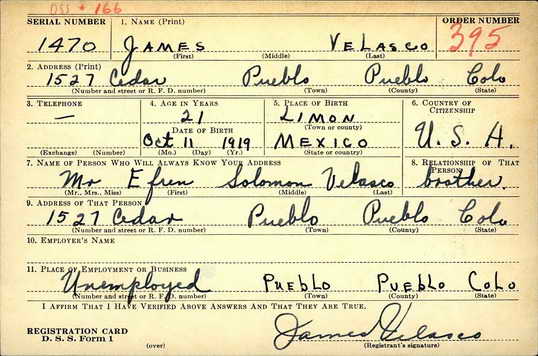 DSS * 166
SERIAL NUMBER 1. NAME (Print) ORDER NUMBER
1470 JAMES VELASCO 395
(First) (Middle) (Last)
2. ADDRESS (Print)
1527 Cedar Pueblo Pueblo Colo
(Number and street or R. F. D. number) (Town) (County) (State)
3. TELEPHONE 4. AGE IN YEARS 5. PLACE OF BIRTH 6. COUNTRY OF CITIZENSHIP
— 21 LIMON U. S. A.
(Town or county)
DATE OF BIRTH
Oct 11 1919 MEXICO
(Exchange) (Number) (Mo.) (Day) (Yr.) (State or country)
7. NAME OF PERSON WHO WILL ALWAYS KNOW YOUR ADDRESS 8. RELATIONSHIP OF THAT PERSON
Mr Efren Solomon Velasco brother
(Mr., Mrs., Miss) (First) (Middle) (Last)
9. ADDRESS OF THAT PERSON
1527 Cedar Pueblo Pueblo Colo
(Number and street or R. F. D. number) (Town) (County) (State)
10. EMPLOYER'S NAME
11. PLACE OF EMPLOYMENT OR BUSINESS
Unemployed PUEBLO PUEBLO COLO
(Number and street or R. F. D. number) (Town) (County) (State)
I AFFIRM THAT I HAVE VERIFIED ABOVE ANSWERS AND THAT THEY ARE TRUE.
REGISTRATION CARD James Velasco
D. S. S. Form 1 (over) (Registrant's signature)